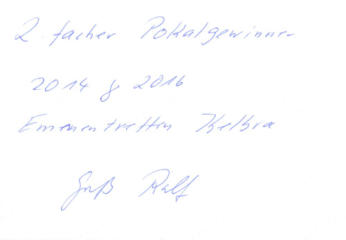 2. facher Pokalgewinner
2014 & 2016
Emmentreffen Kelbra
Gruß Ralf